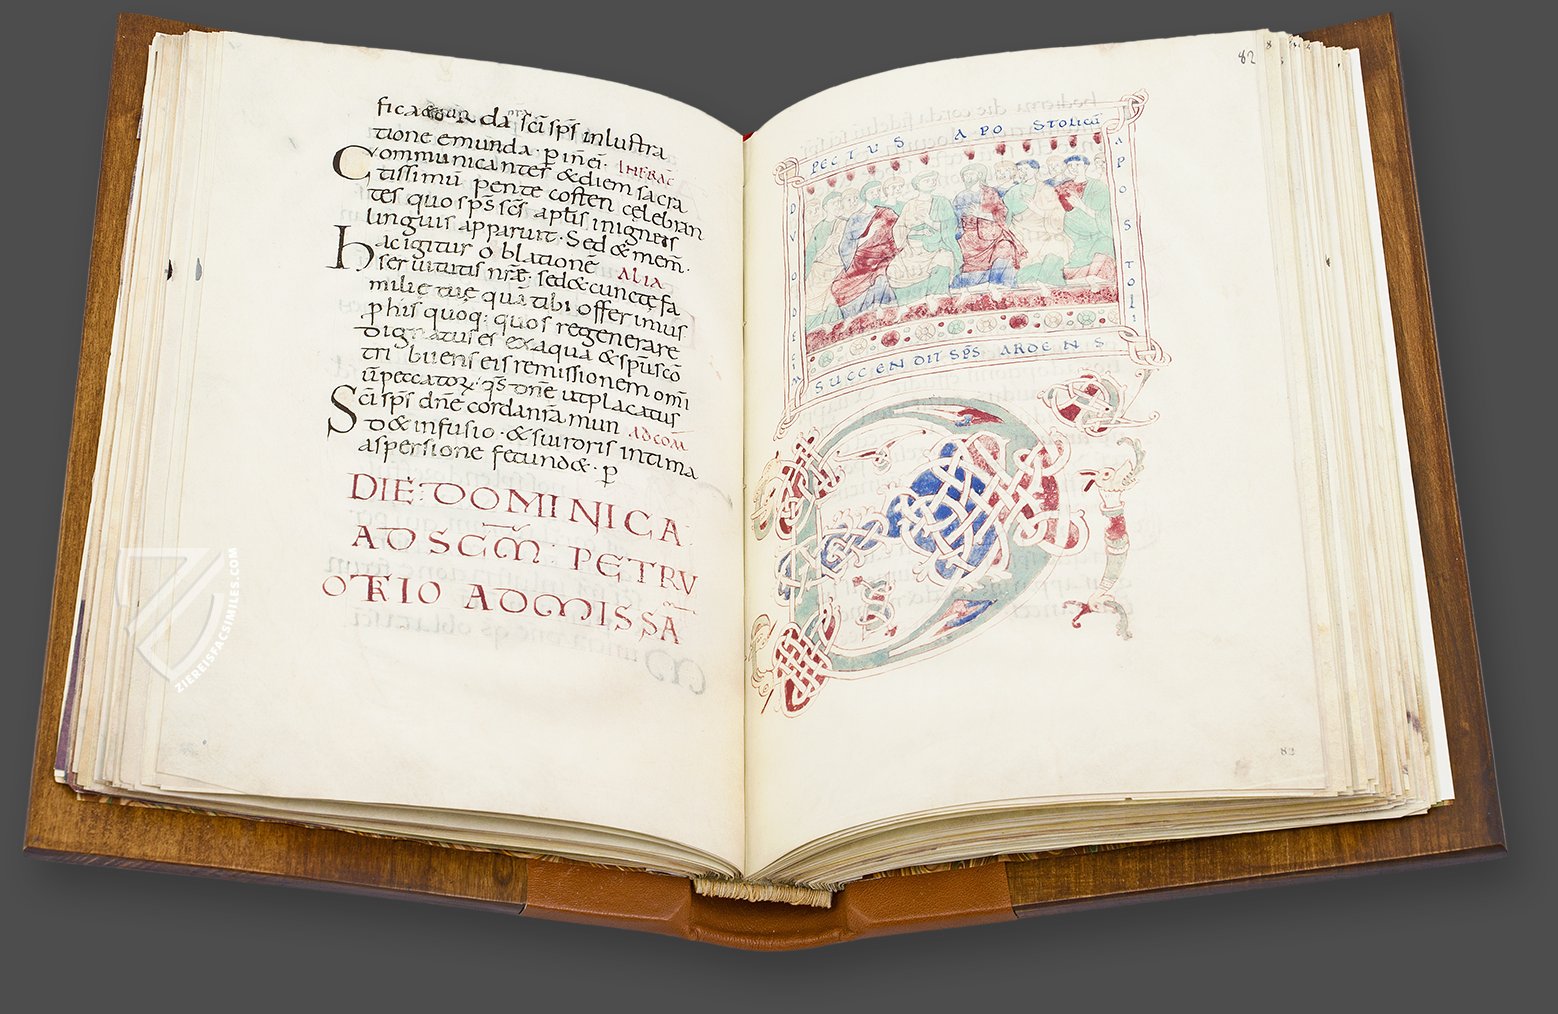 ficatur da sc̄i sp̄s inlustra
tione emunda· ꝑ in ei· INFRAC̄
Communicantes &diem sacra
tissimū pente costen celebran
tes quo sp̄s sc̄s apl̄is inigneis
linguis apparuit· Sed & mem̄·
hac igitur oblationē ALIA
servitutis nr̄ę· sed&cunctę fa
milię tuę quā tibi offerimus
ꝑ his quoq; quos regenerare
dignatus es exaqua &spūscō
tri buens eis remissionem omī
ū peccatoꝝ· q̄s dn̄e utplacatus
Sci sp̄s dn̄e cordanr̄a mun ADCOM̄
d& infusio· & sui roris intima
aspersione fecund&· ꝑ
DIĒ DOMINICA
AD SCM̄: PETRV
OR̄IO ADMISSĀ
82
PECTUS APOSTOLICŪ
DUODECIM
APOSTOLI
SUCCENDIT SP̄S ARDENS
D
82
ZIEREISFACSIMILES.COM